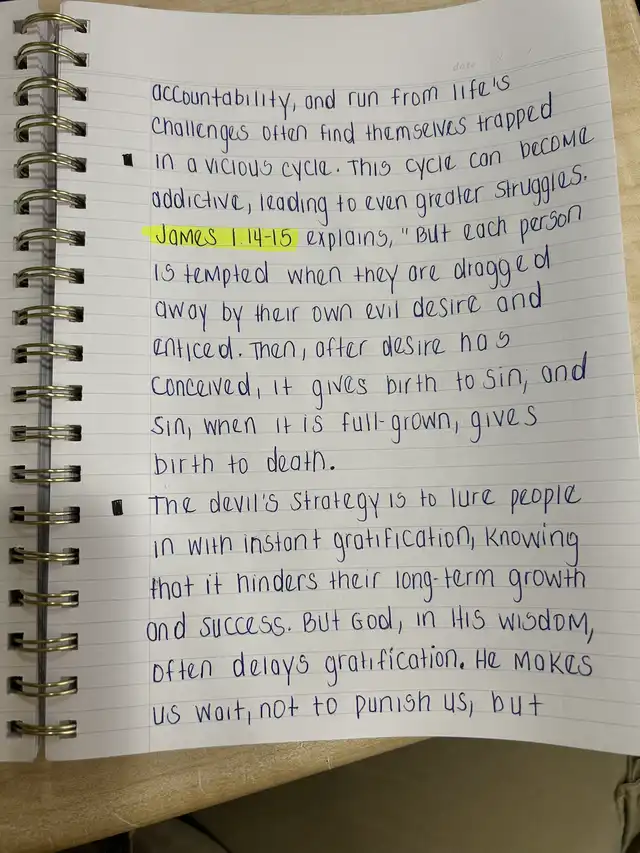 date
accountability, and run from life's
challenges often find themselves trapped
in a vicious cycle. This cycle can become
addictive, leading to even greater struggles.
James 1:14-15 explains, "But each person
is tempted when they are dragged
away by their own evil desire and
enticed. Then, after desire has
conceived, it gives birth to sin, and
sin, when it is full-grown, gives
birth to death.
The devil's strategy is to lure people
in with instant gratification, knowing
that it hinders their long-term growth
and success. But God, in His wisdom,
often delays gratification. He makes
us wait, not to punish us, but